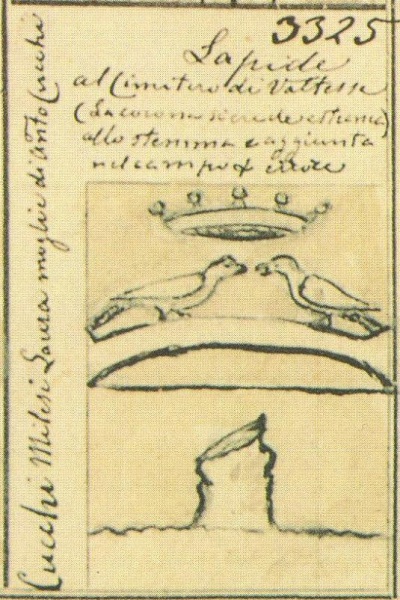 3325
Lapide
al Cimitero di Valtesse
(La corona si crede estranea)
allo stemma e aggiunta
nel campo
Cucchi Milesi Laura moglie di Antº Cucchi